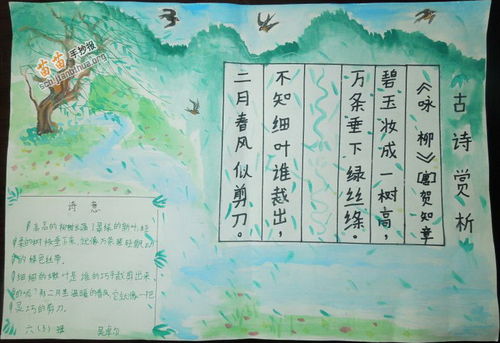 古诗赏析
《咏柳》[唐]贺知章
碧玉妆成一树高，
万条垂下绿丝绦。
不知细叶谁裁出，
二月春风似剪刀。
苗苗手抄报
诗意
高高的柳树长满了翠绿的新叶，轻
柔的柳枝垂下来，就像万条轻轻飘动
的绿色丝带。
细细的嫩叶是谁的巧手裁剪出来
的呢？那二月里温暖的春风，它就像一把
灵巧的剪刀。
六（3）班